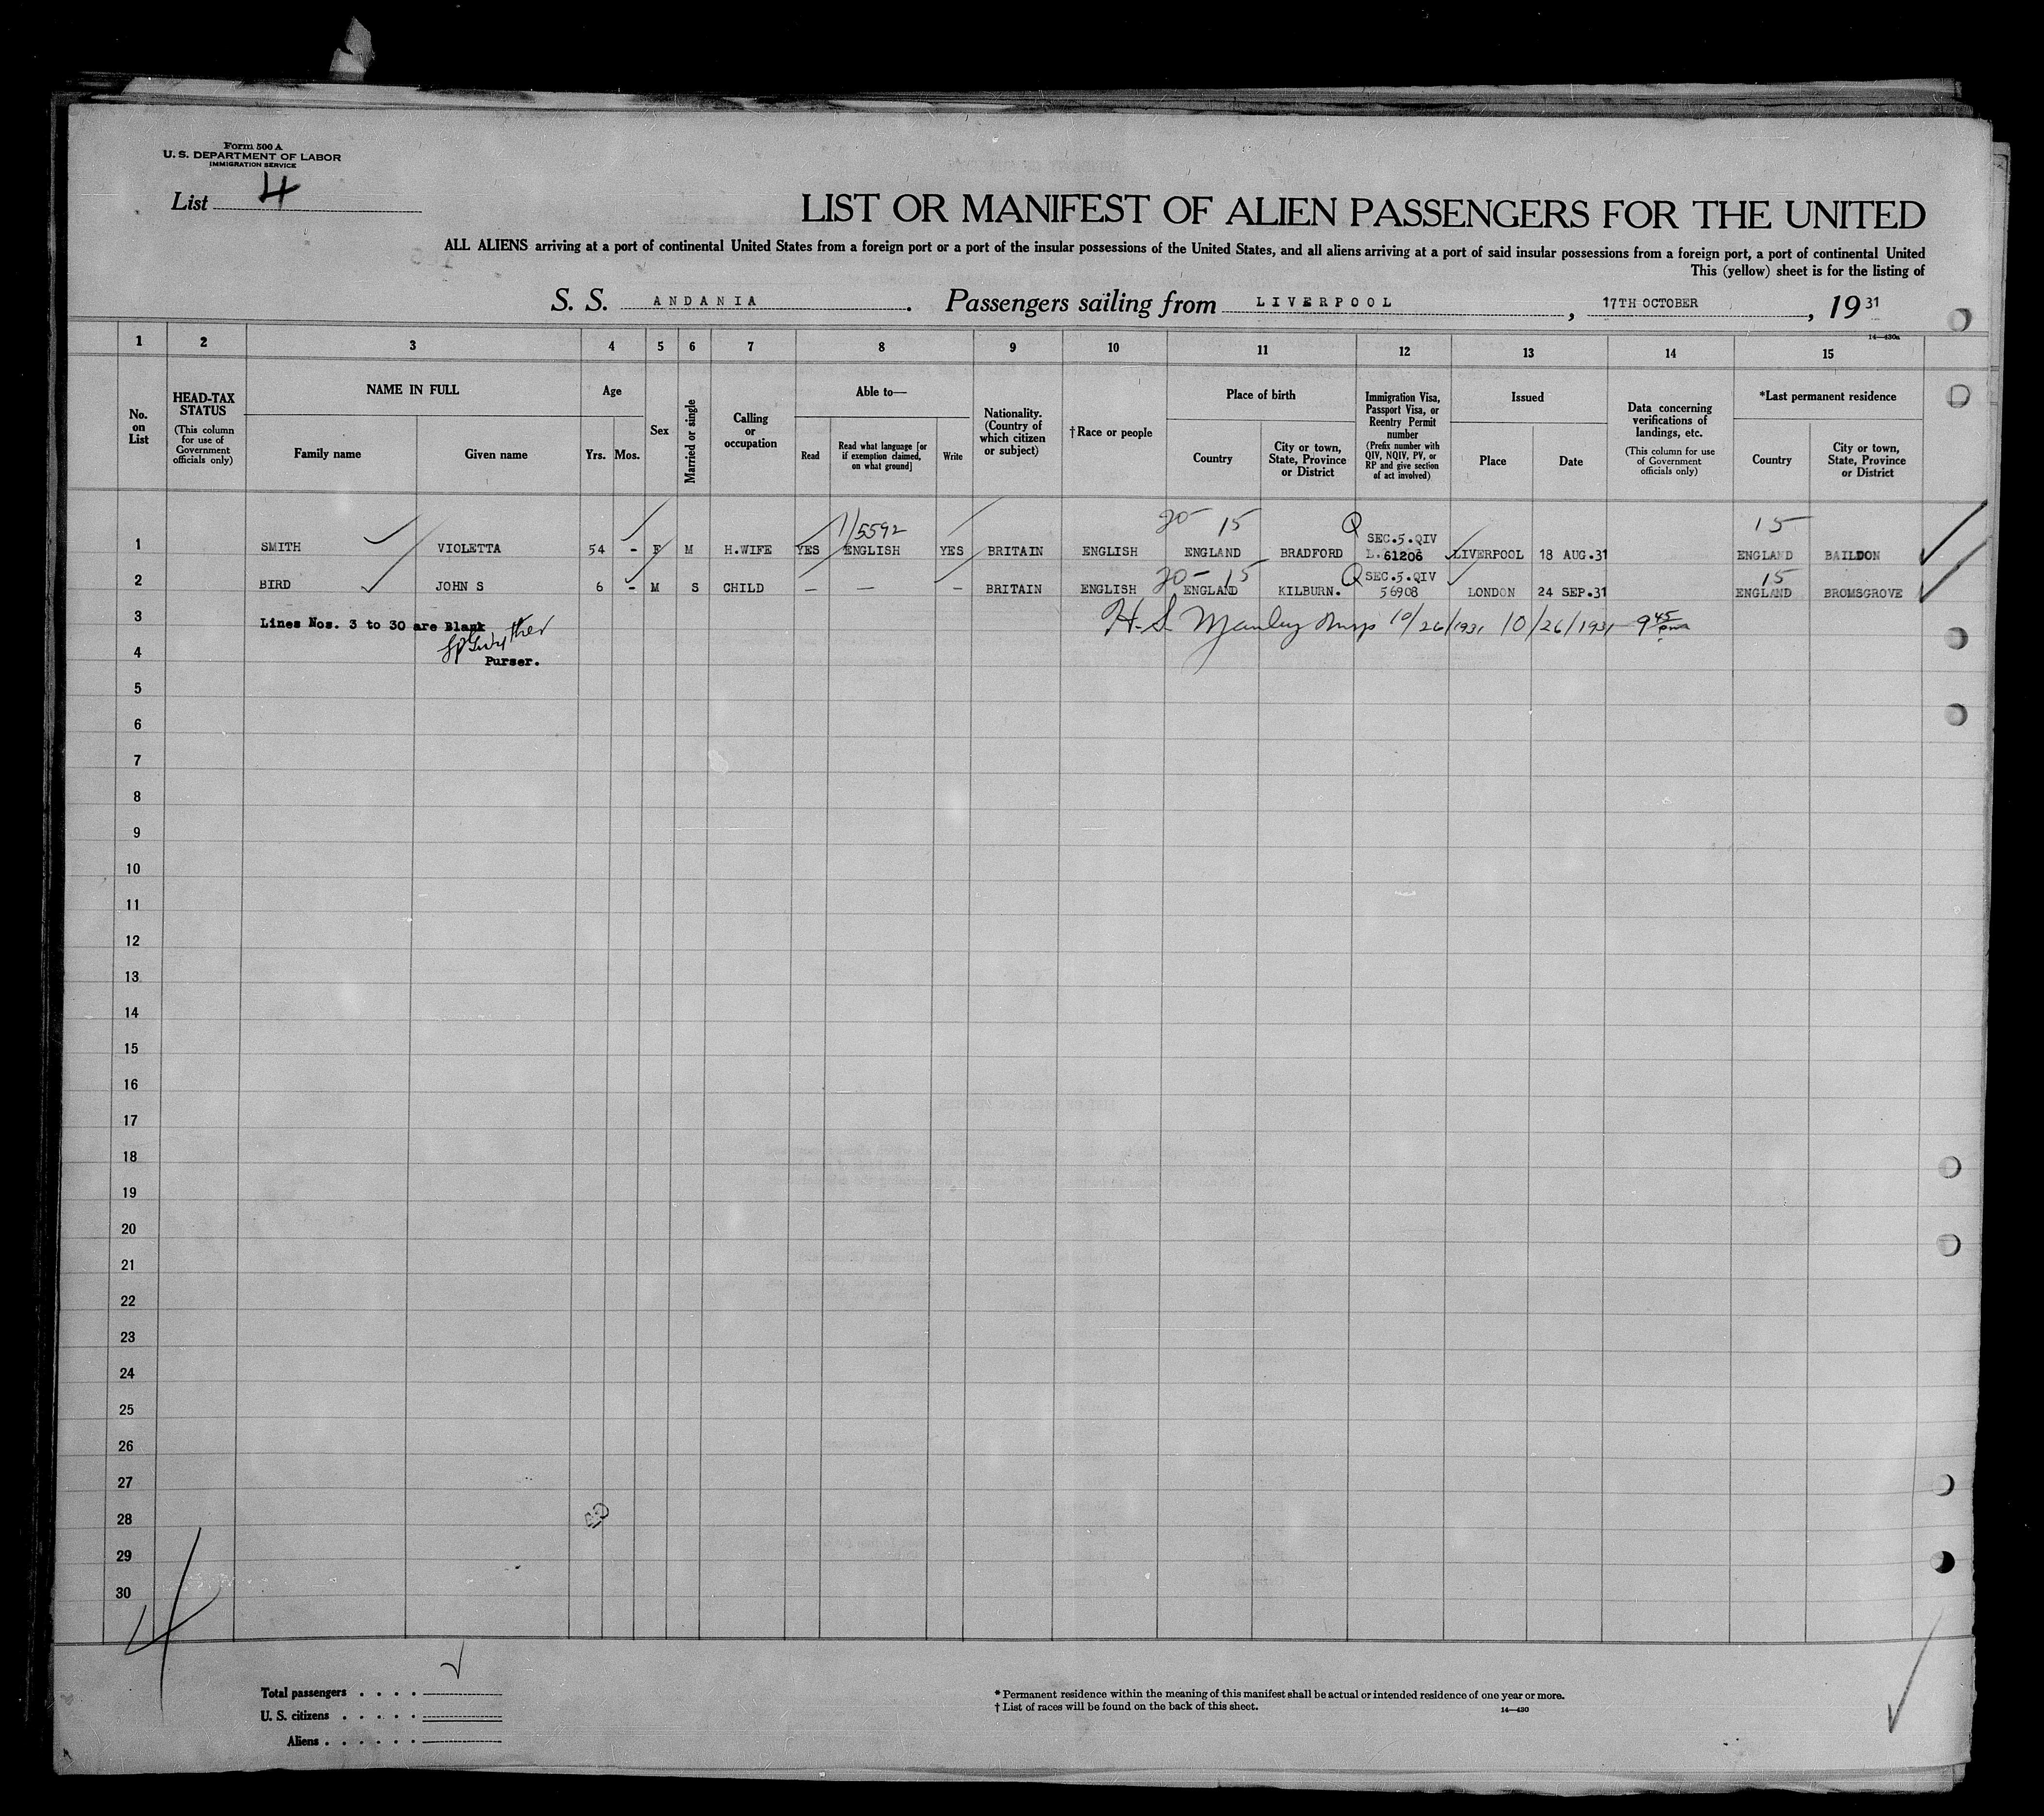 Form 500 A
U. S. DEPARTMENT OF LABOR
IMMIGRATION SERVICE
List 4
LIST OR MANIFEST OF ALIEN PASSENGERS FOR THE UNITED
ALL ALIENS arriving at a port of continental United States from a foreign port or a port of the insular possessions of the United States, and all aliens arriving at a port of said insular possessions from a foreign port, a port of continental United
This (yellow) sheet is for the listing of
S. S. ANDANIA. Passengers sailing from LIVERPOOL, 17TH OCTOBER, 19 31
14—430a
1 2 3 4 5 6 7 8 9 10 11 12 13 14 15
No. on List
HEAD-TAX STATUS
(This column for use of Government officials only)
NAME IN FULL
Family name
Given name
Age
Yrs.
Mos.
Sex
Married or single
Calling or occupation
Able to—
Read
Read what language [or if exemption claimed, on what ground]
Write
Nationality. (Country of which citizen or subject)
†Race or people
Place of birth
Country
City or town, State, Province or District
Immigration Visa, Passport Visa, or Reentry Permit number
(Prefix number with QIV, NQIV, PV, or RP and give section of act involved)
Issued
Place
Date
Data concerning verifications of landings, etc.
(This column for use of Government officials only)
*Last permanent residence
Country
City or town, State, Province or District
1/5592 20 15 Q SEC.5.QIV 15
1 SMITH VIOLETTA 54 - F M H.WIFE YES ENGLISH YES BRITAIN ENGLISH ENGLAND BRADFORD L.61206 LIVERPOOL 18 AUG.31 ENGLAND BAILDON
20-15 Q SEC.5.QIV 15
2 BIRD JOHN S 6 - M S CHILD — — — BRITAIN ENGLISH ENGLAND KILBURN. 56908 LONDON 24 SEP.31 ENGLAND BROMSGROVE
3 Lines Nos. 3 to 30 are Blank H. S. Manley 10/26/1931 10/26/1931 9 45 pm
4 Purser.
5
6
7
8
9
10
11
12
13
14
15
16
17
18
19
20
21
22
23
24
25
26
27
28
29
30
4
Total passengers . . . .
U. S. citizens . . . . .
Aliens . . . . . .
* Permanent residence within the meaning of this manifest shall be actual or intended residence of one year or more.
† List of races will be found on the back of this sheet.
14—430